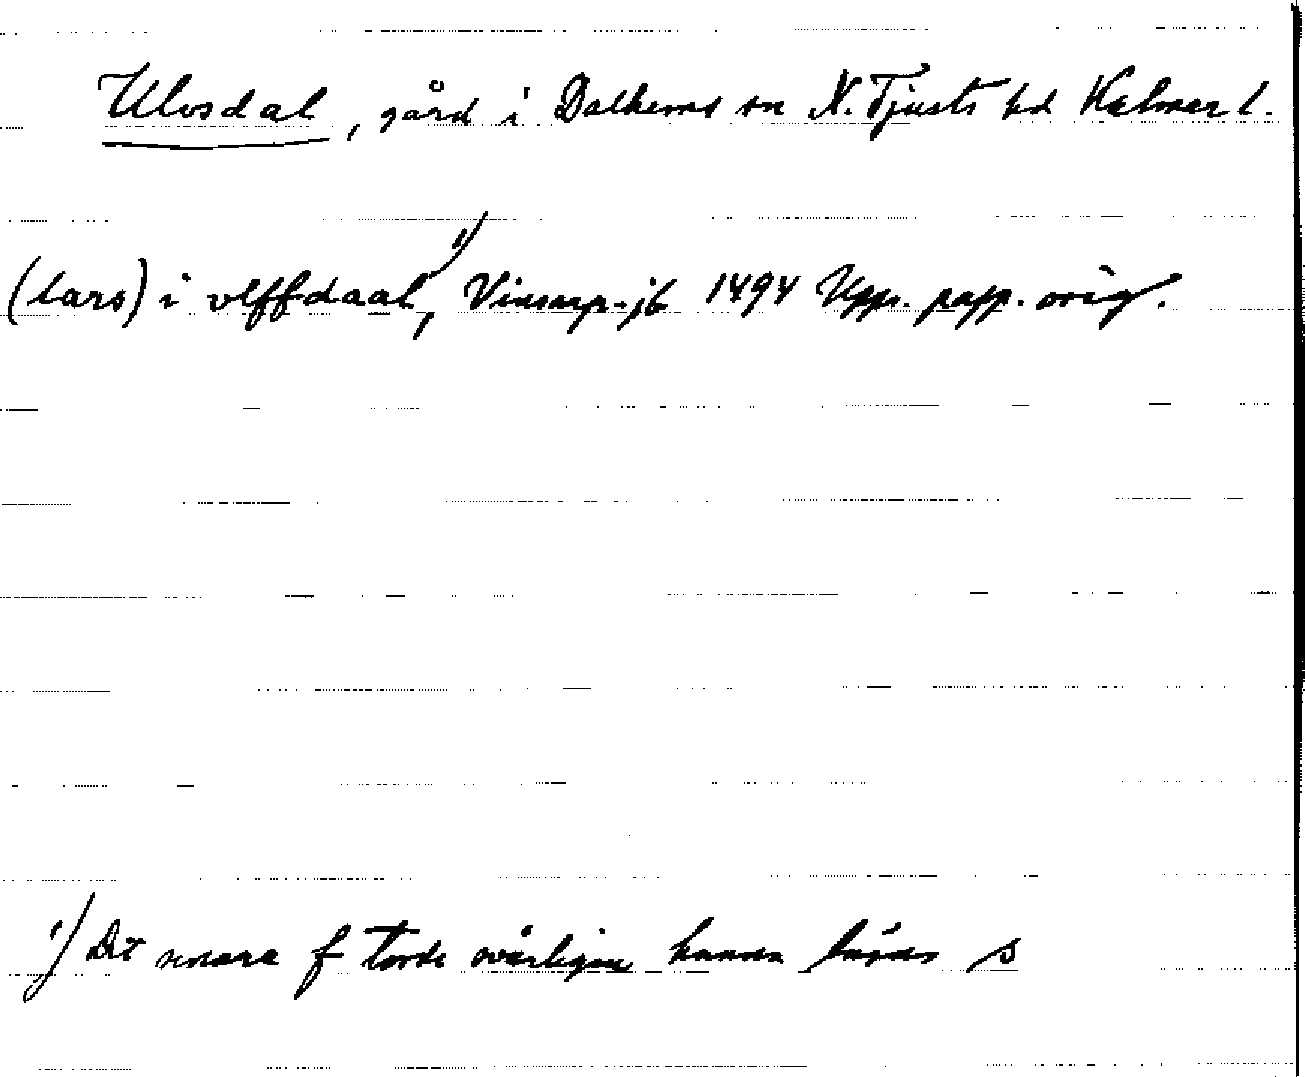 Ulvsdal, gård i Dalhems sn N. Tjusts hd Kalmar l.
(lars) i vlffdaal, 1) Vinsarp-jb 1494 Upps. papp. orig.
1) Det senare f torde svårligen kunna läsas s